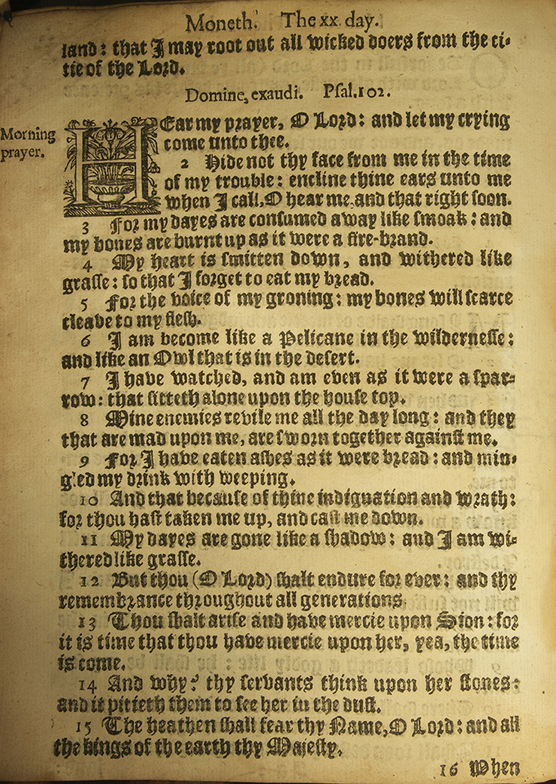 Moneth. The xx. day.
land: that I may root out all wicked doers from the ci-
tie of the Lord.
Domine, exaudi. Psal.102.
Morning
prayer.
HEar my prayer, O Lord: and let my crying
come unto thee.
2 Hide not thy face from me in the time
of my trouble: encline thine ears unto me
when I call, O hear me, and that right soon.
3 For my dayes are consumed away like smoak: and
my bones are burnt up as it were a fire-brand.
4 My heart is smitten down, and withered like
grasse: so that I forget to eat my bread.
5 For the voice of my groning: my bones will scarce
cleave to my flesh.
6 I am become like a Pelicane in the wildernesse:
and like an Owl that is in the desert.
7 I have watched, and am even as it were a spar-
row: that sitteth alone upon the house top.
8 Mine enemies revile me all the day long: and they
that are mad upon me, are sworn together against me.
9 For I have eaten ashes as it were bread: and min-
gled my drink with weeping.
10 And that because of thine indignation and wrath:
for thou hast taken me up, and cast me down.
11 My dayes are gone like a shadow: and I am wi-
thered like grasse.
12 But thou (O Lord) shalt endure for ever: and thy
remembrance throughout all generations.
13 Thou shalt arise and have mercie upon Sion: for
it is time that thou have mercie upon her, yea, the time
is come.
14 And why? thy servants think upon her stones:
and it pitieth them to see her in the dust.
15 The heathen shall fear thy Name, O Lord: and all
the kings of the earth thy Majesty.
16 When